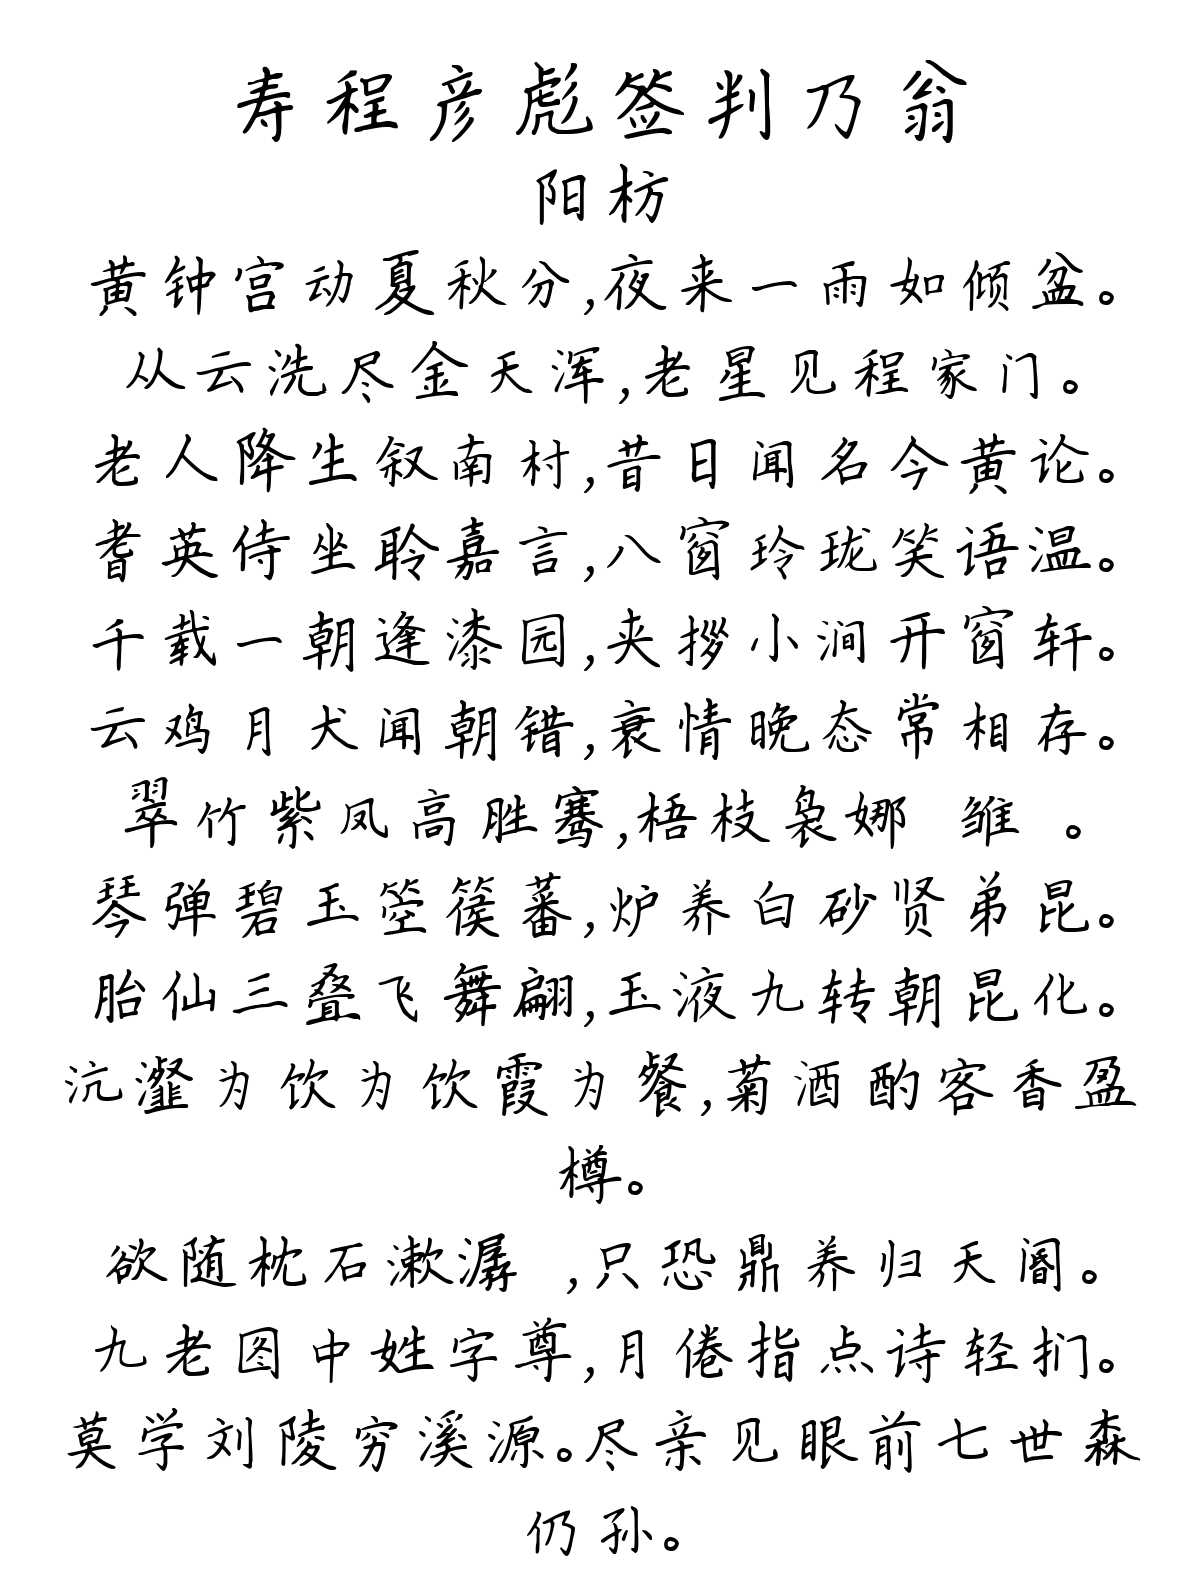 寿程彦彪签判乃翁
阳枋
黄钟宫动夏秋分,夜来一雨如倾盆。
从云洗尽金天浑,老星见程家门。
老人降生叙南村,昔日闻名今黄论。
耆英侍坐聆嘉言,八窗玲珑笑语温。
千载一朝逢漆园,夹拶小涧开窗轩。
云鸡月犬闻朝错,衰情晚态常相存。
翠竹紫凤高胜骞,梧枝袅娜 雏 。
琴弹碧玉箜篌蕃,炉养白砂贤弟昆。
胎仙三叠飞舞翩,玉液九转朝昆化。
沆瀣为饮为饮霞为餐,菊酒酌客香盈
樽。
欲随枕石漱潺 ,只恐鼎养归天阍。
九老图中姓字尊,月倦指点诗轻扪。
莫学刘陵穷溪源。尽亲见眼前七世森
仍孙。